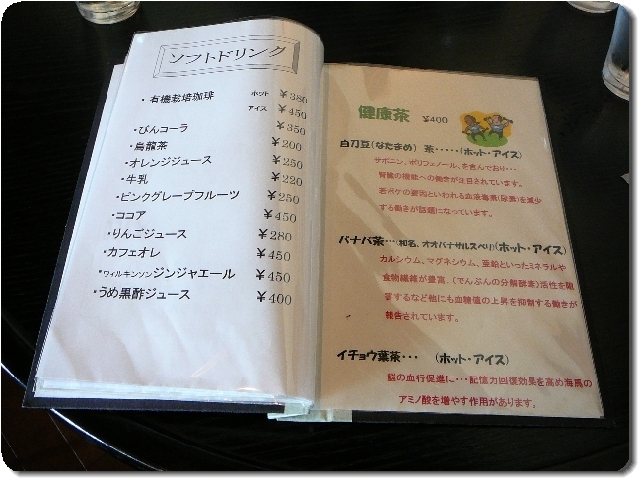 ソフトドリンク
・有機栽培珈琲 ホット ￥380
アイス ￥450
・びんコーラ ￥350
・烏龍茶 ￥200
・オレンジジュース ￥250
・牛乳 ￥220
・ピンクグレープフルーツ ￥250
・ココア ￥450
・りんごジュース ￥280
・カフェオレ ￥450
・ウィルキンソンジンジャエール ￥450
・うめ黒酢ジュース ￥400
健康茶 ￥400
白刀豆(なたまめ) 茶・・・・・(ホット・アイス)
サポニン、ポリフェノール、を含んでおり・・・
腎臓の機能への働きが注目されています。
若ボケの要因といわれる血液毒素(尿素)を減少
する働きが話題になっています。
バナバ茶・・・(和名、オオバナサルスベリ)(ホット・アイス)
カルシウム、マグネシウム、亜鉛といったミネラルや
食物繊維が豊富、(でんぷんの分解酵素)活性を阻
害するなど他にも血糖値の上昇を抑制する働きが
報告されています。
イチョウ葉茶・・・ (ホット・アイス)
脳の血行促進に・・・記憶力回復効果を高め海馬の
アミノ酸を増やす作用があります。